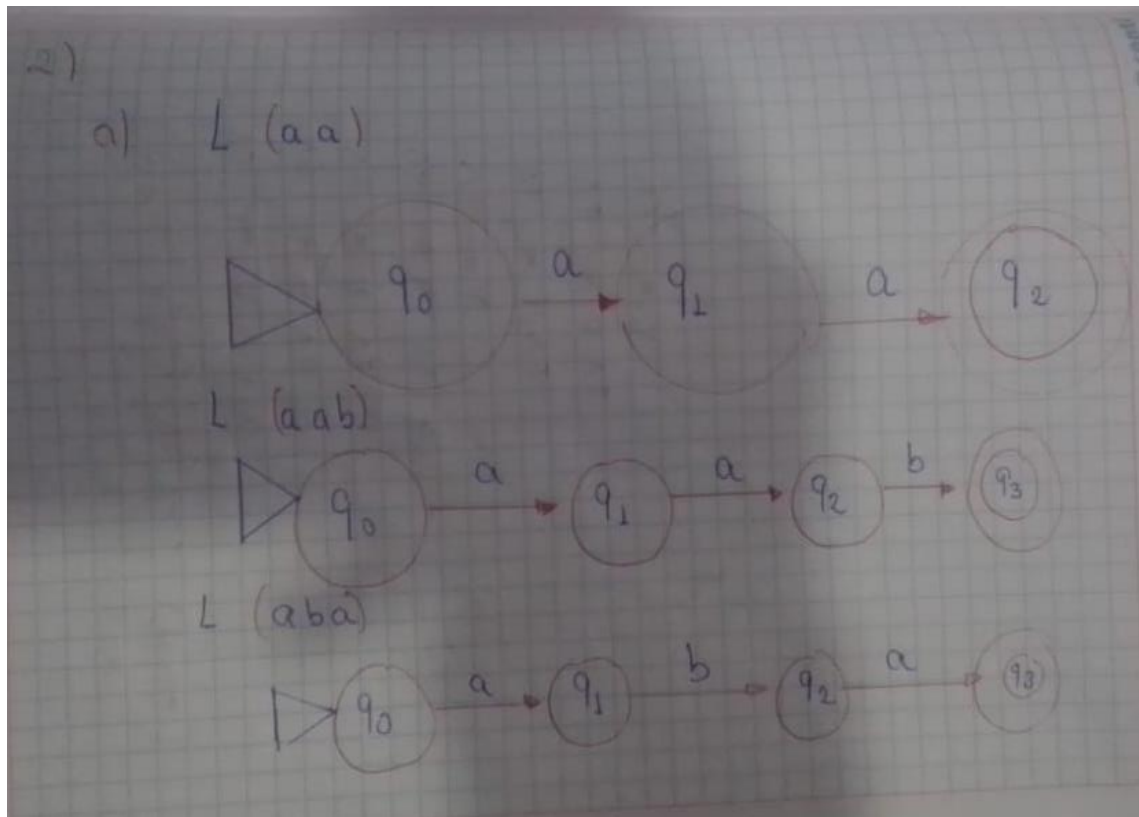 2)
a) L (aa)
q0 a q1 a q2
L (aab)
q0 a q1 a q2 b q3
L (aba)
q0 a q1 b q2 a q3